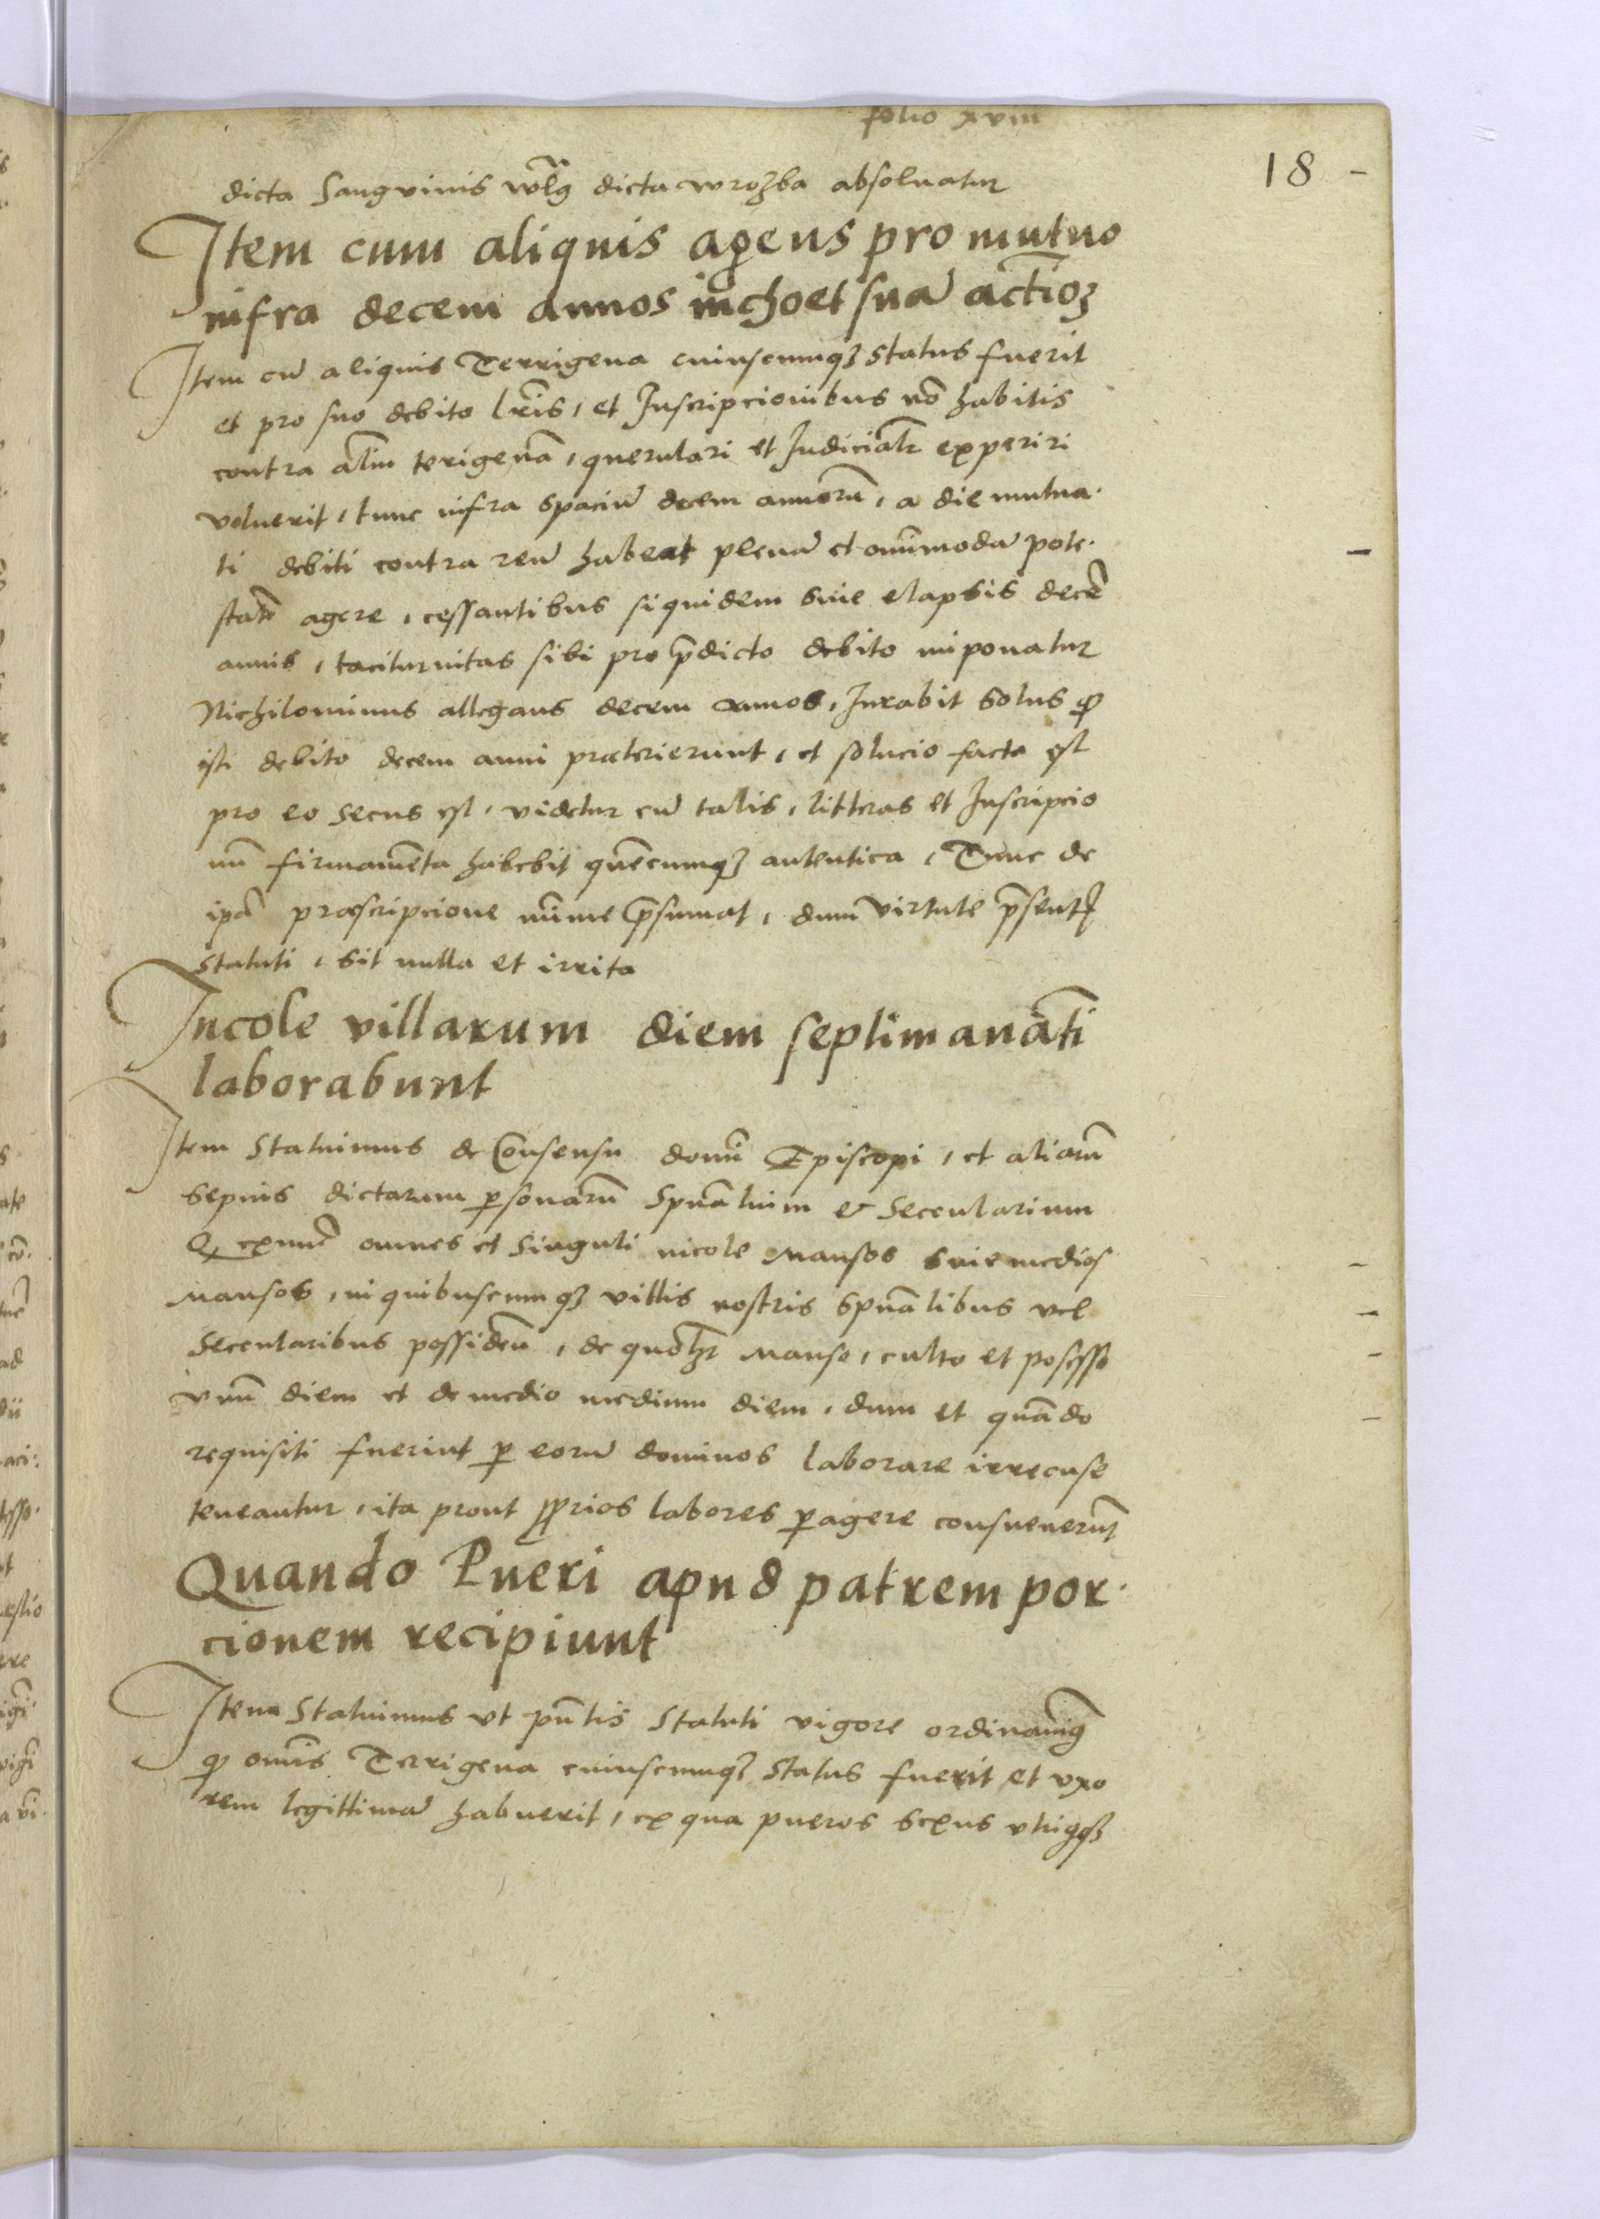 folio xviii
18
dicta Sangvinis wlg dicta wrozba absoluatur
Item cum aliquis agens pro mutuo
infra decem annos inchoet suā actioz
Item cū aliquis Terrigena cuiuscunqz status fuerit
et pro suo debito lris, et Inscripcionibus nō habitis
contra aliū terigenā, querulari et Judicialr experiri
voluerit, tunc infra spaciū decem annorū, a die mutua
ti debiti contra reū habeat plenā et omīmodā pote
statē agere, cessantibus siquidem siue elapsis decē
annis, taciturnitas sibi pro p̄dicto debito imponatur
Nichilominus allegans decem annos, Jurabit solus qp
isti debito decem anni præterierunt, et solucio facta est
pro eo secus est, videtur cū talis, litteras et Inscripcio
nū firmamēta habebit quēcumqz autentica, Tunc de
ipā præscripcione mīnime p̄sumat, dum virtute p̄sentis
statuti, sit nulla et irrita
Incole villarum diem septimanāti
laborabunt
Item Statuimus de Consensu domī Episcopi, et aliarū
sepius dictarum personarū Spūalium et Secularium
Q ex nūc omnes et Singuli incole Mansos siue medios
Mansos, in quibuscumqz villis nostris spūalibus vel
Secularibus possideñ, de quolz Manso, culto et possesso
vnū diem et de medio medium diem, dum et quādo
requisiti fuerint p eorū dominos laborare irrecuse
teneantur, ita prout pprios labores pagere consueuerūt
Quando Pueri apud patrem por
cionem recipiunt
Item Statuimus vt pn̄tis Statuti vigore ordinamg
qp omīs Terrigena cuiuscumqz Status fuerit et vxo
rem legittimā habuerit, ex qua pueros sexus vtriqz